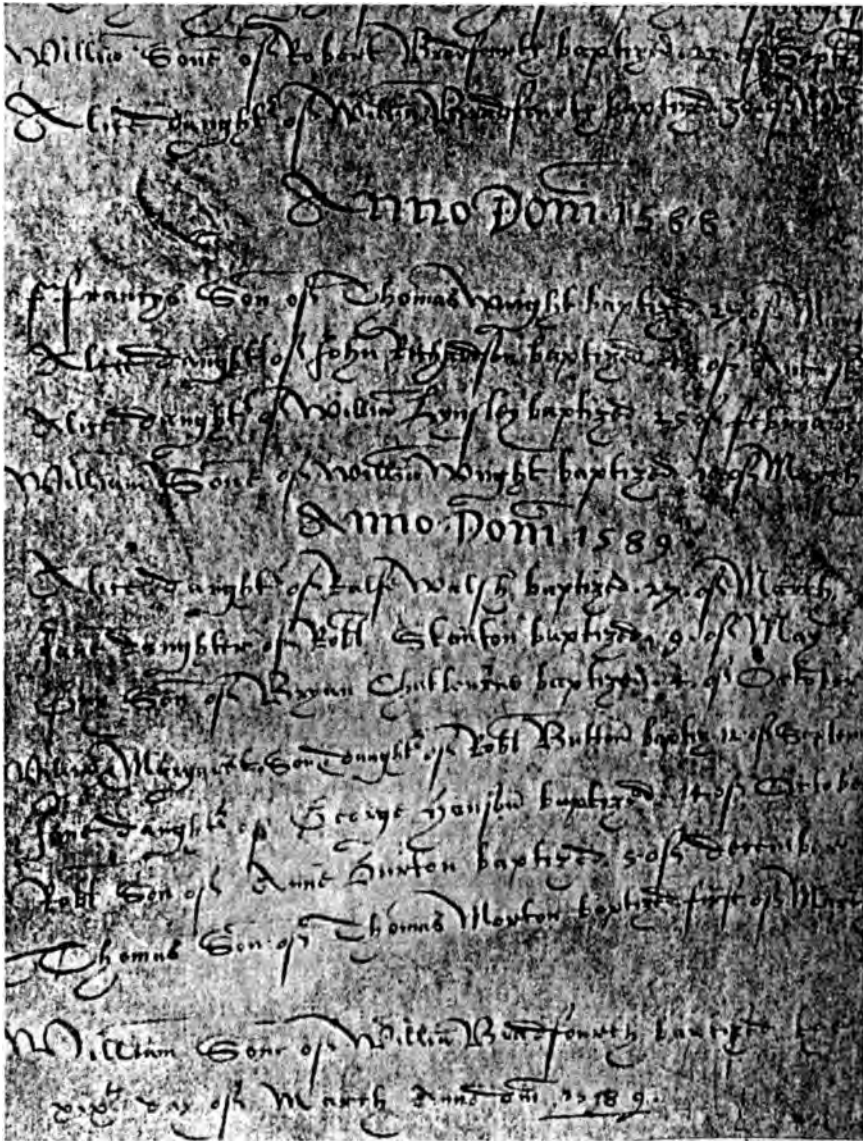 Willm Sone of Robert Bradfourth baptized
Alice daught^r of Willm Bradfourth baptized 30 of
Anno Dom. 1588
ffrancys Son of Thomas Wright baptized 27 of
Alice daught^r of John Richardson baptized of August
Alice daught^r of Willm Lynsley baptized 25 of february
William Sone of Willm Wright baptized of March
Anno Dom. 1589
Alice daught^r of Ralf Walsh baptized 27 of March
Jane daughter of Rob^t Stenton baptized 9 of May
Son of Bryan baptized 4 of October
Willm Margaret Son daught^r of Rob^t Button baptiz 12 of Septem
Jane daught^r of George baptized 14 of Octobe
Rob^t Son of Anne Hurton baptized 5 of december
Thomas Son of Thomas Morton baptized first of
William Sone of Willm Bradfourth baptized
xix^th day of March Anno dm 1589